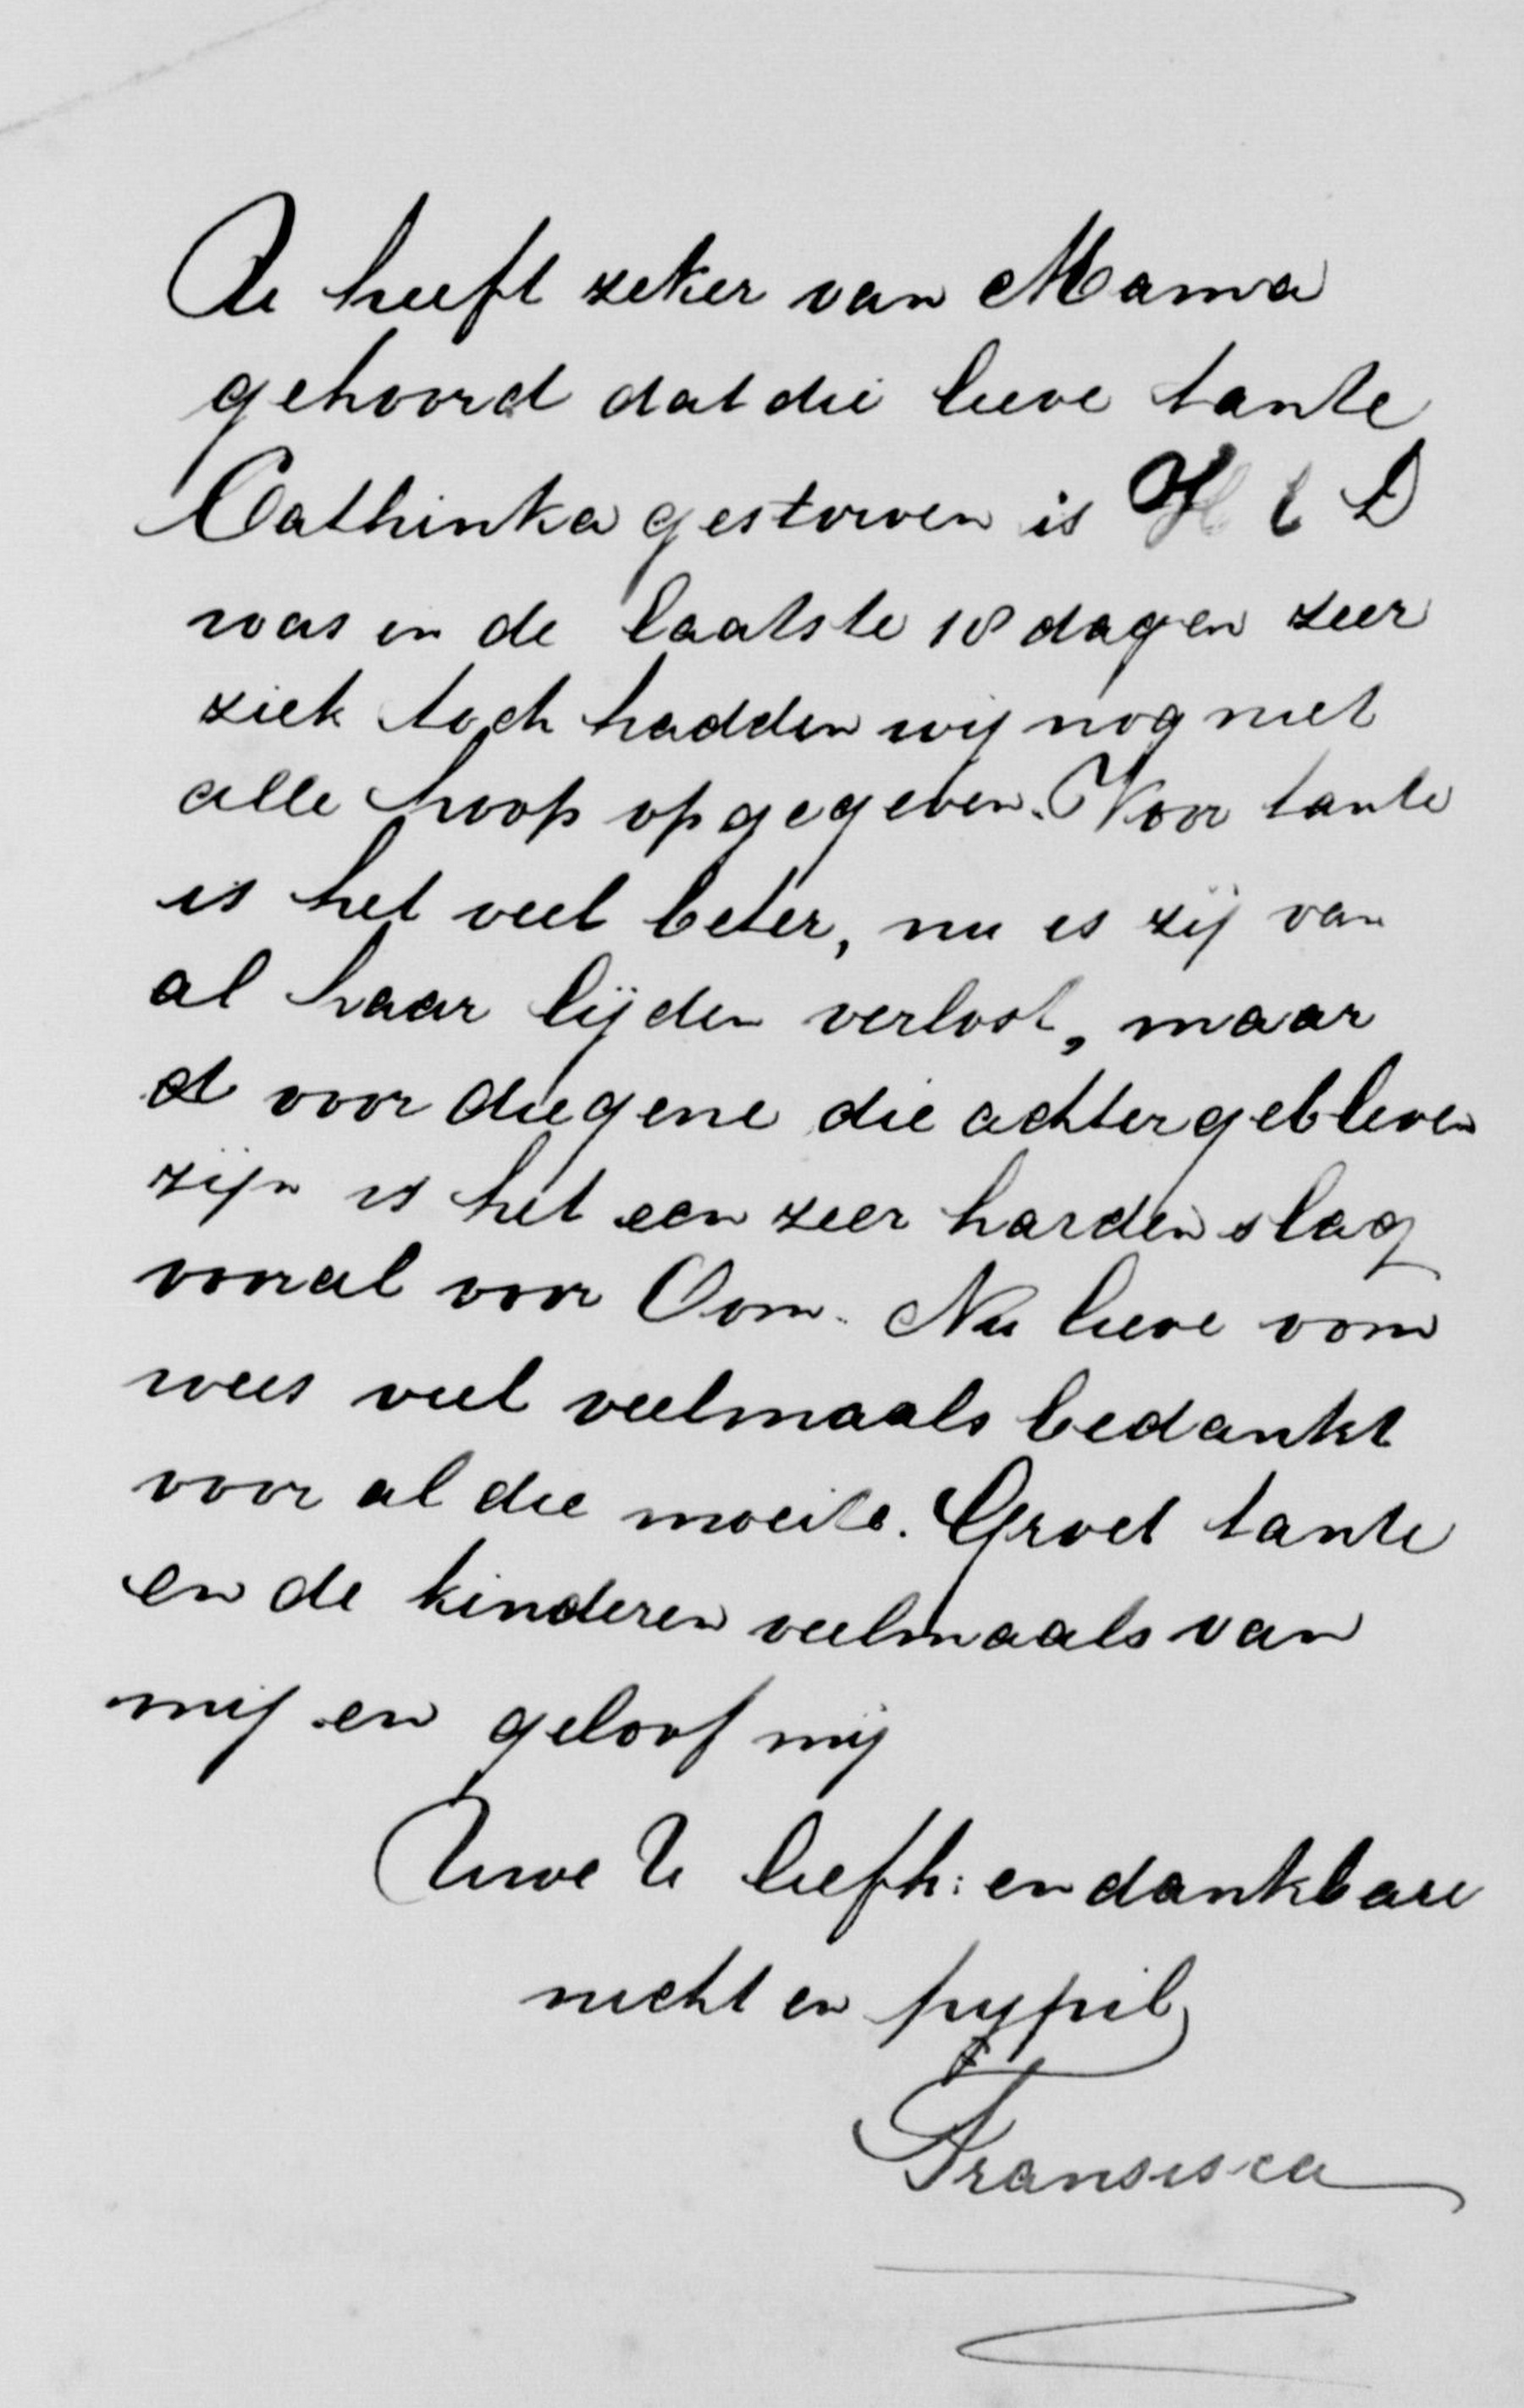 U heeft zeker van Mama
gehoord dat die lieve tante
Cathinka gestorven is H E D
was in de laatste 10 dagen zeer
ziek toch hadden wij nog niet
alle hoop opgegeven. Voor tante
is het veel beter, nu is zij van
al haar lijden verlost, maar
voor diegene die achtergebleven
zijn is het een zeer harden slag
vooral voor Oom. Nu lieve oom
wees veel veelmaals bedankt
voor al die moeite. Groet tante
en de kinderen veelmaals van
mij en geloof mij
Uwe U liefh: en dankbare
nicht en pypil
Fransisca